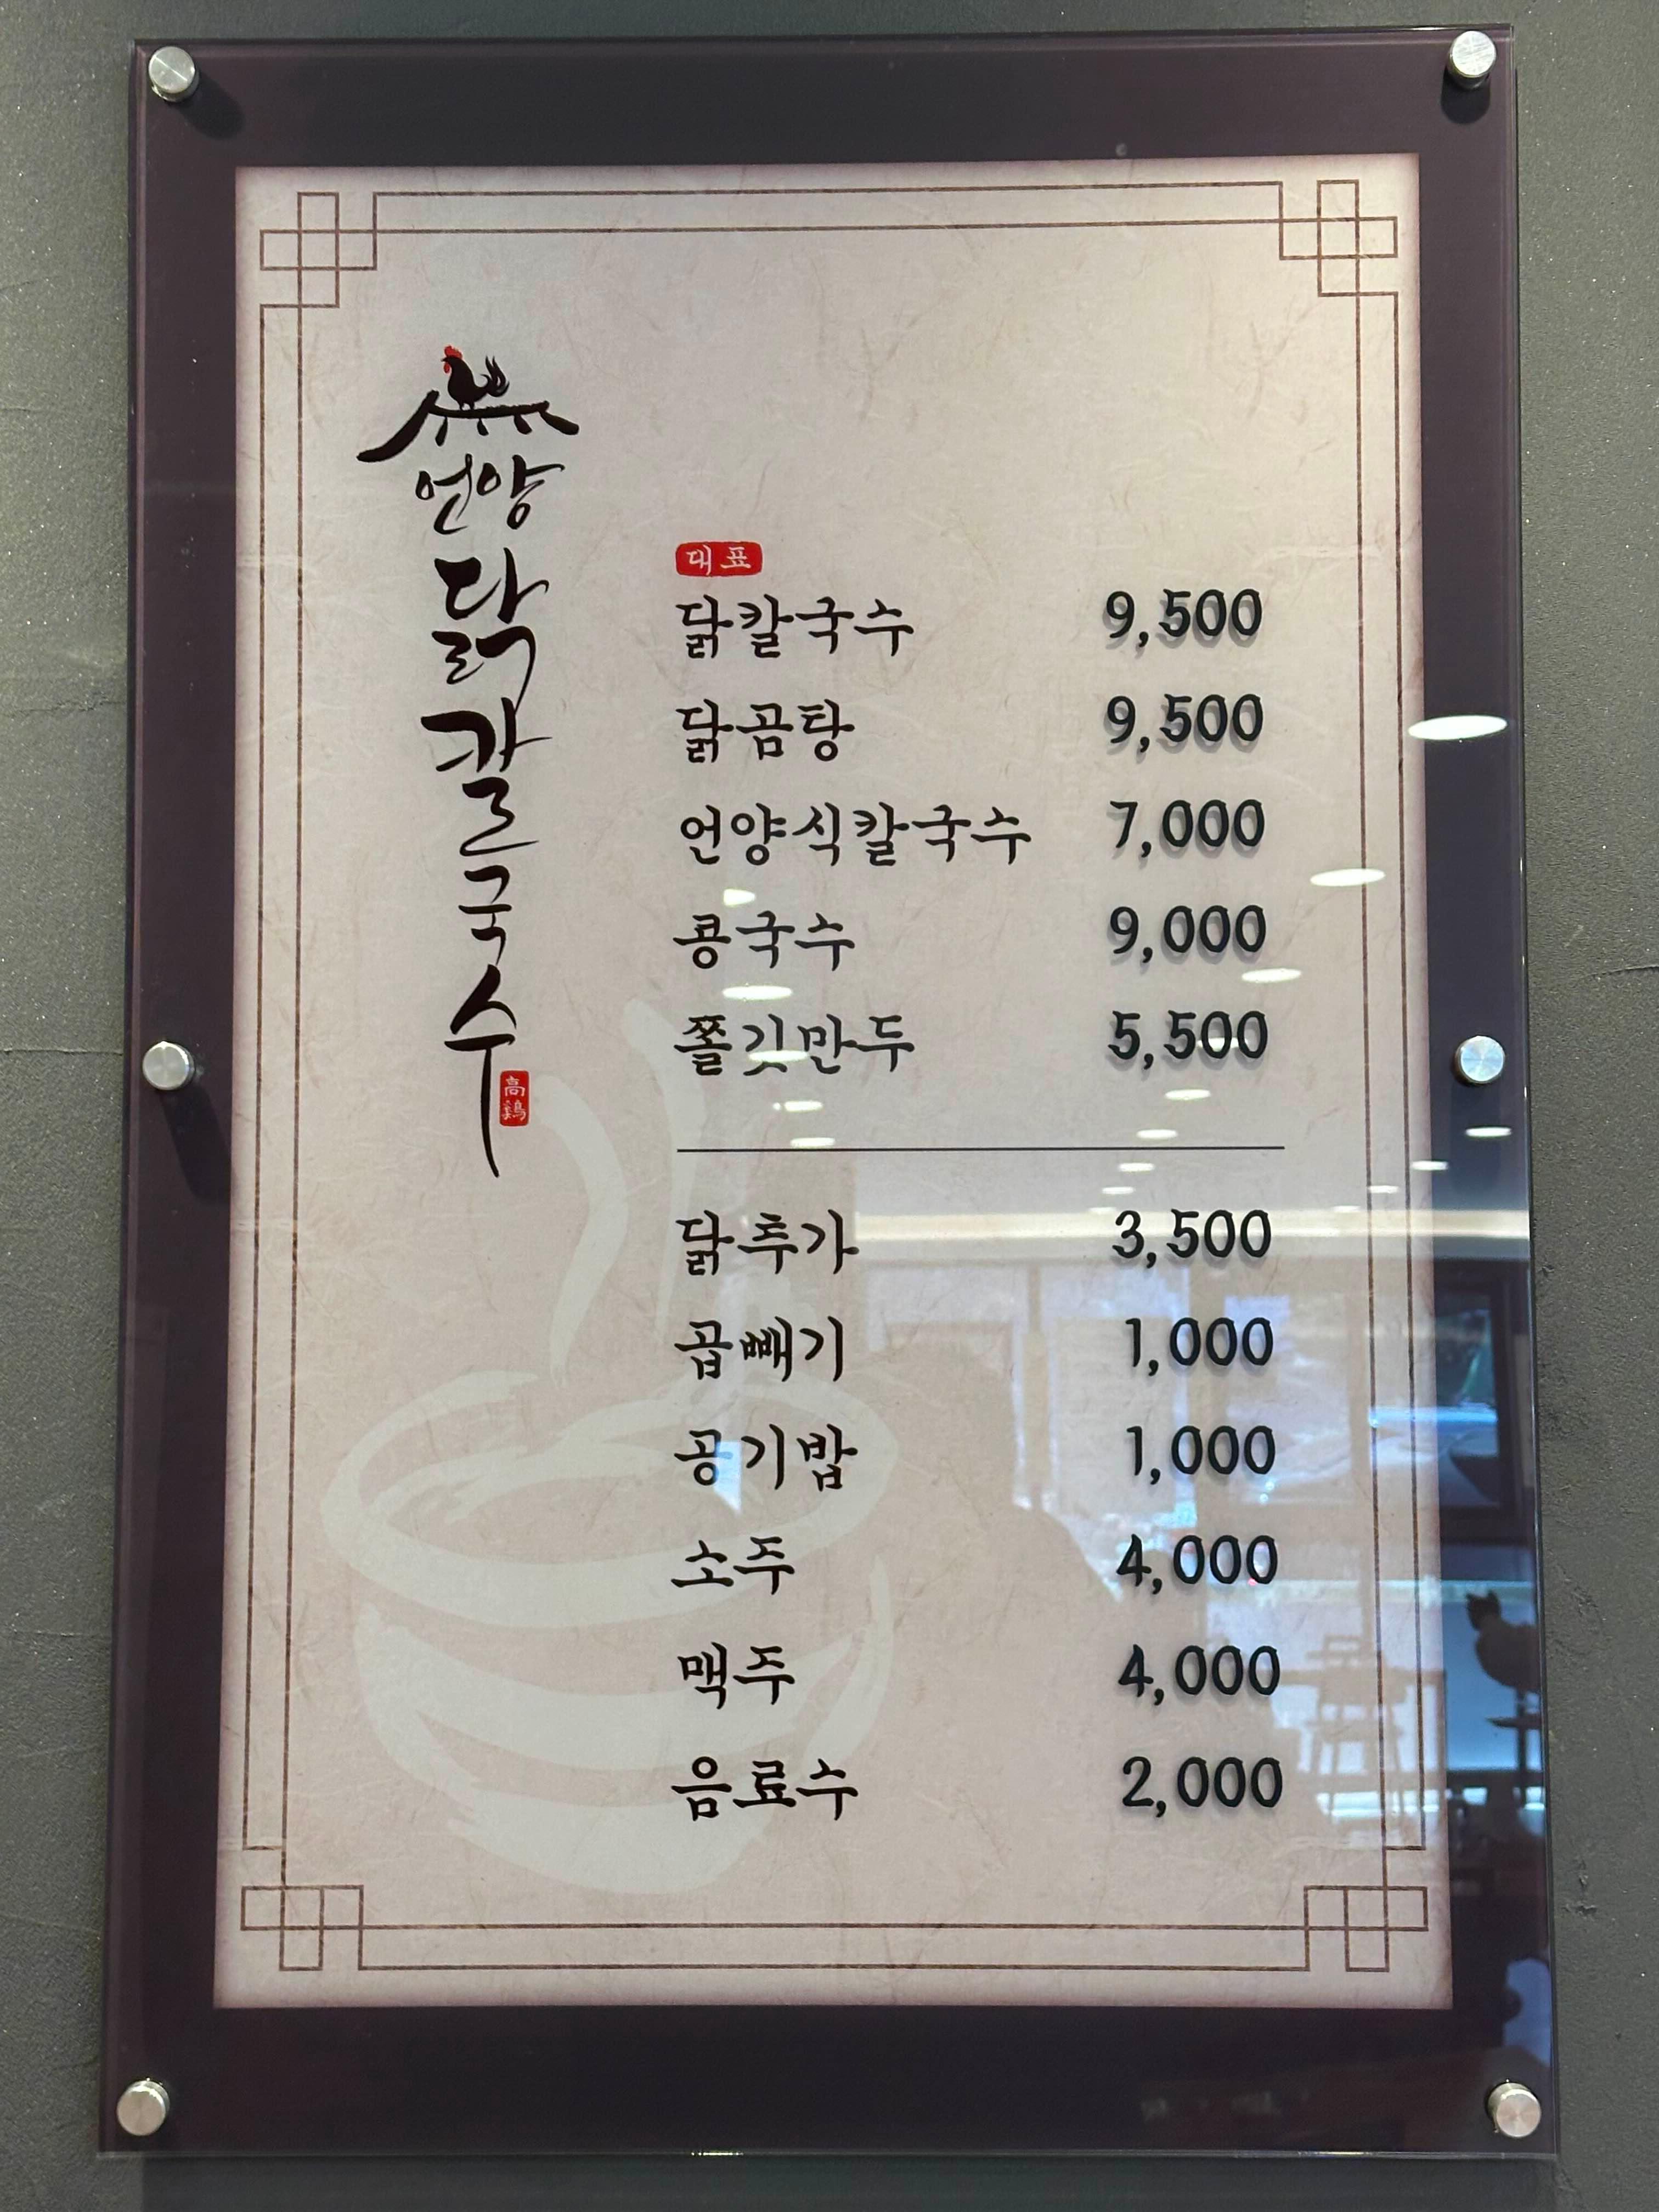 언양
닭
칼
국
수
高
鷄
대표
닭칼국수 9,500
닭곰탕 9,500
언양식칼국수 7,000
콩국수 9,000
쫄깃만두 5,500
닭추가 3,500
곱빼기 1,000
공기밥 1,000
소주 4,000
맥주 4,000
음료수 2,000